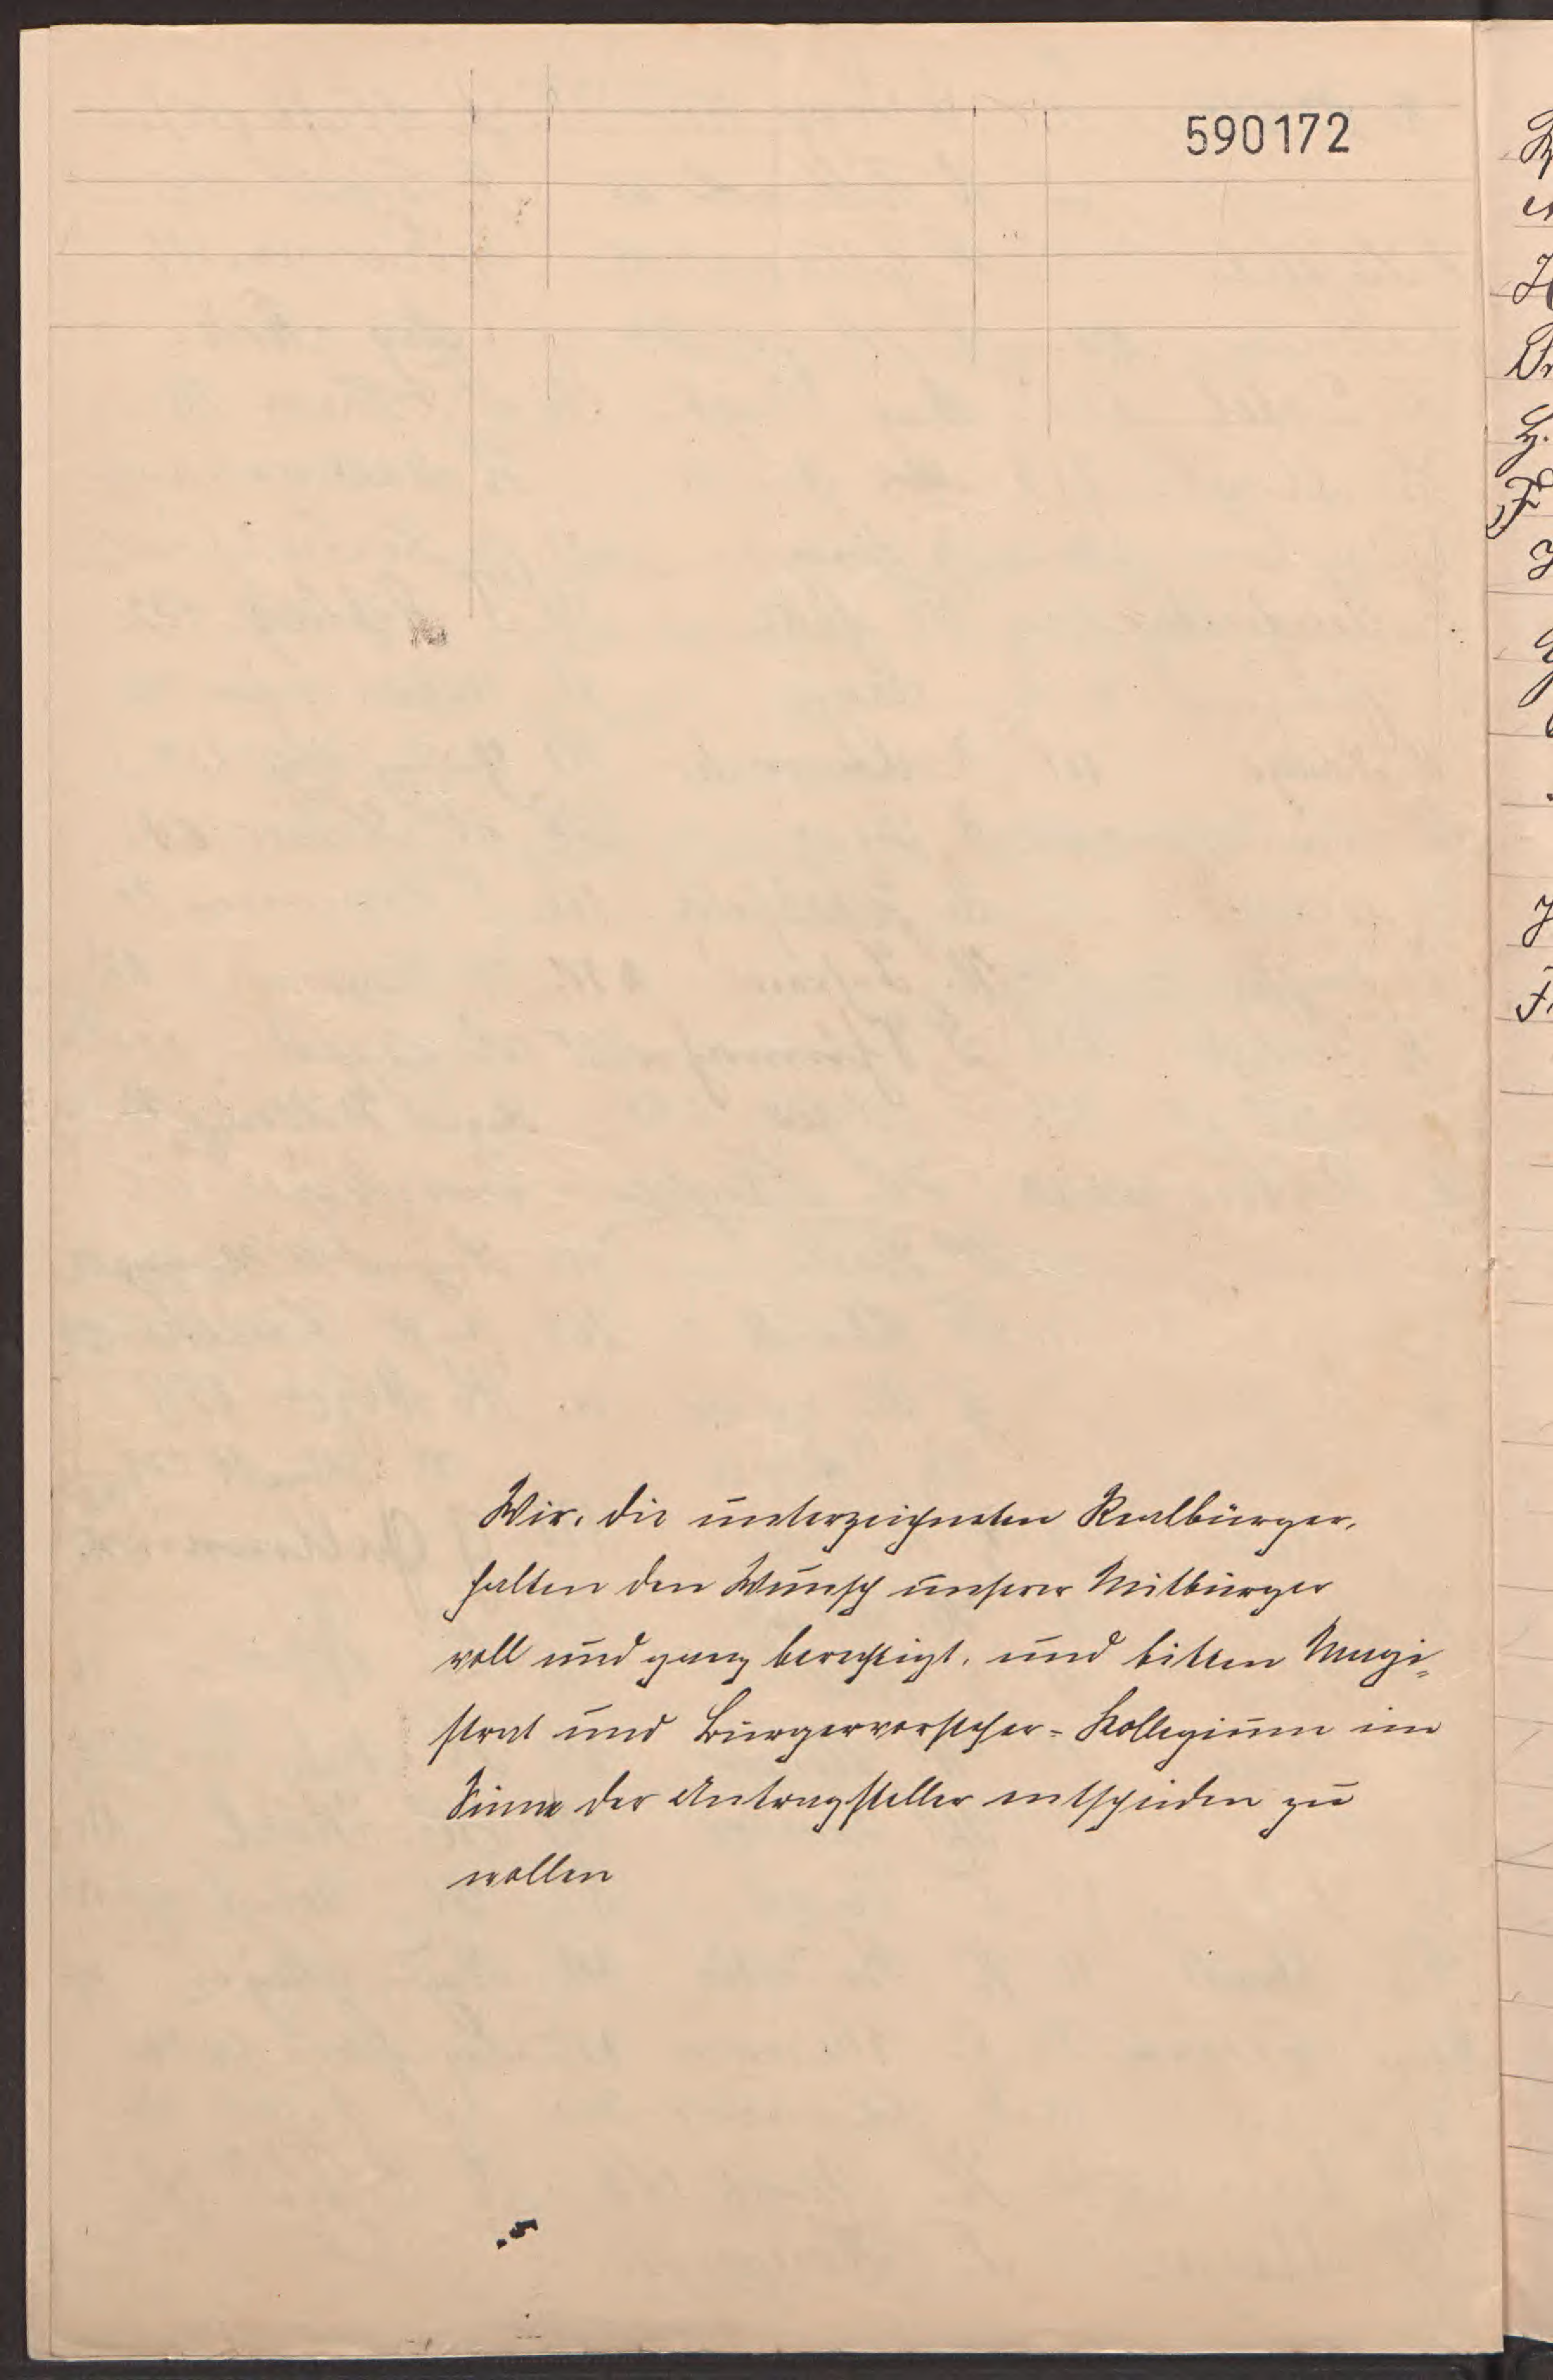 590172
Wir, die unterzeichneten Realbürger,
halten den Wunsch unserer Mitbürger
voll und ganz berechtigt, und bitten Magi-
strat und Bürgervorsteher-Kollegium im
Sinne der Antragsteller entscheiden zu
wollen